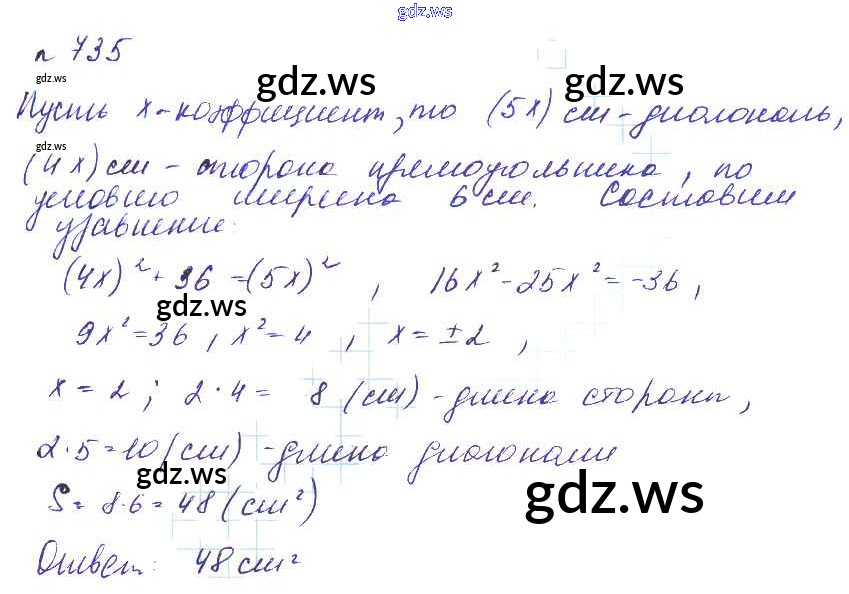 gdz.ws
n 735
gdz.ws
gdz.ws gdz.ws
Пусть x - коэффициент, то (5x) см - диагональ,
gdz.ws
(4x) см - сторона прямоугольника, по
условию ширина 6 см. Составим
уравнение:
(4x)² + 36 = (5x)², 16x² - 25x² = -36,
gdz.ws
9x² = 36, x² = 4, x = ±2,
x = 2; 2·4 = 8 (см) - длина стороны,
2·5 = 10 (см) - длина диагонали
gdz.ws gdz.ws
S = 8·6 = 48 (см²)
Ответ: 48 см²